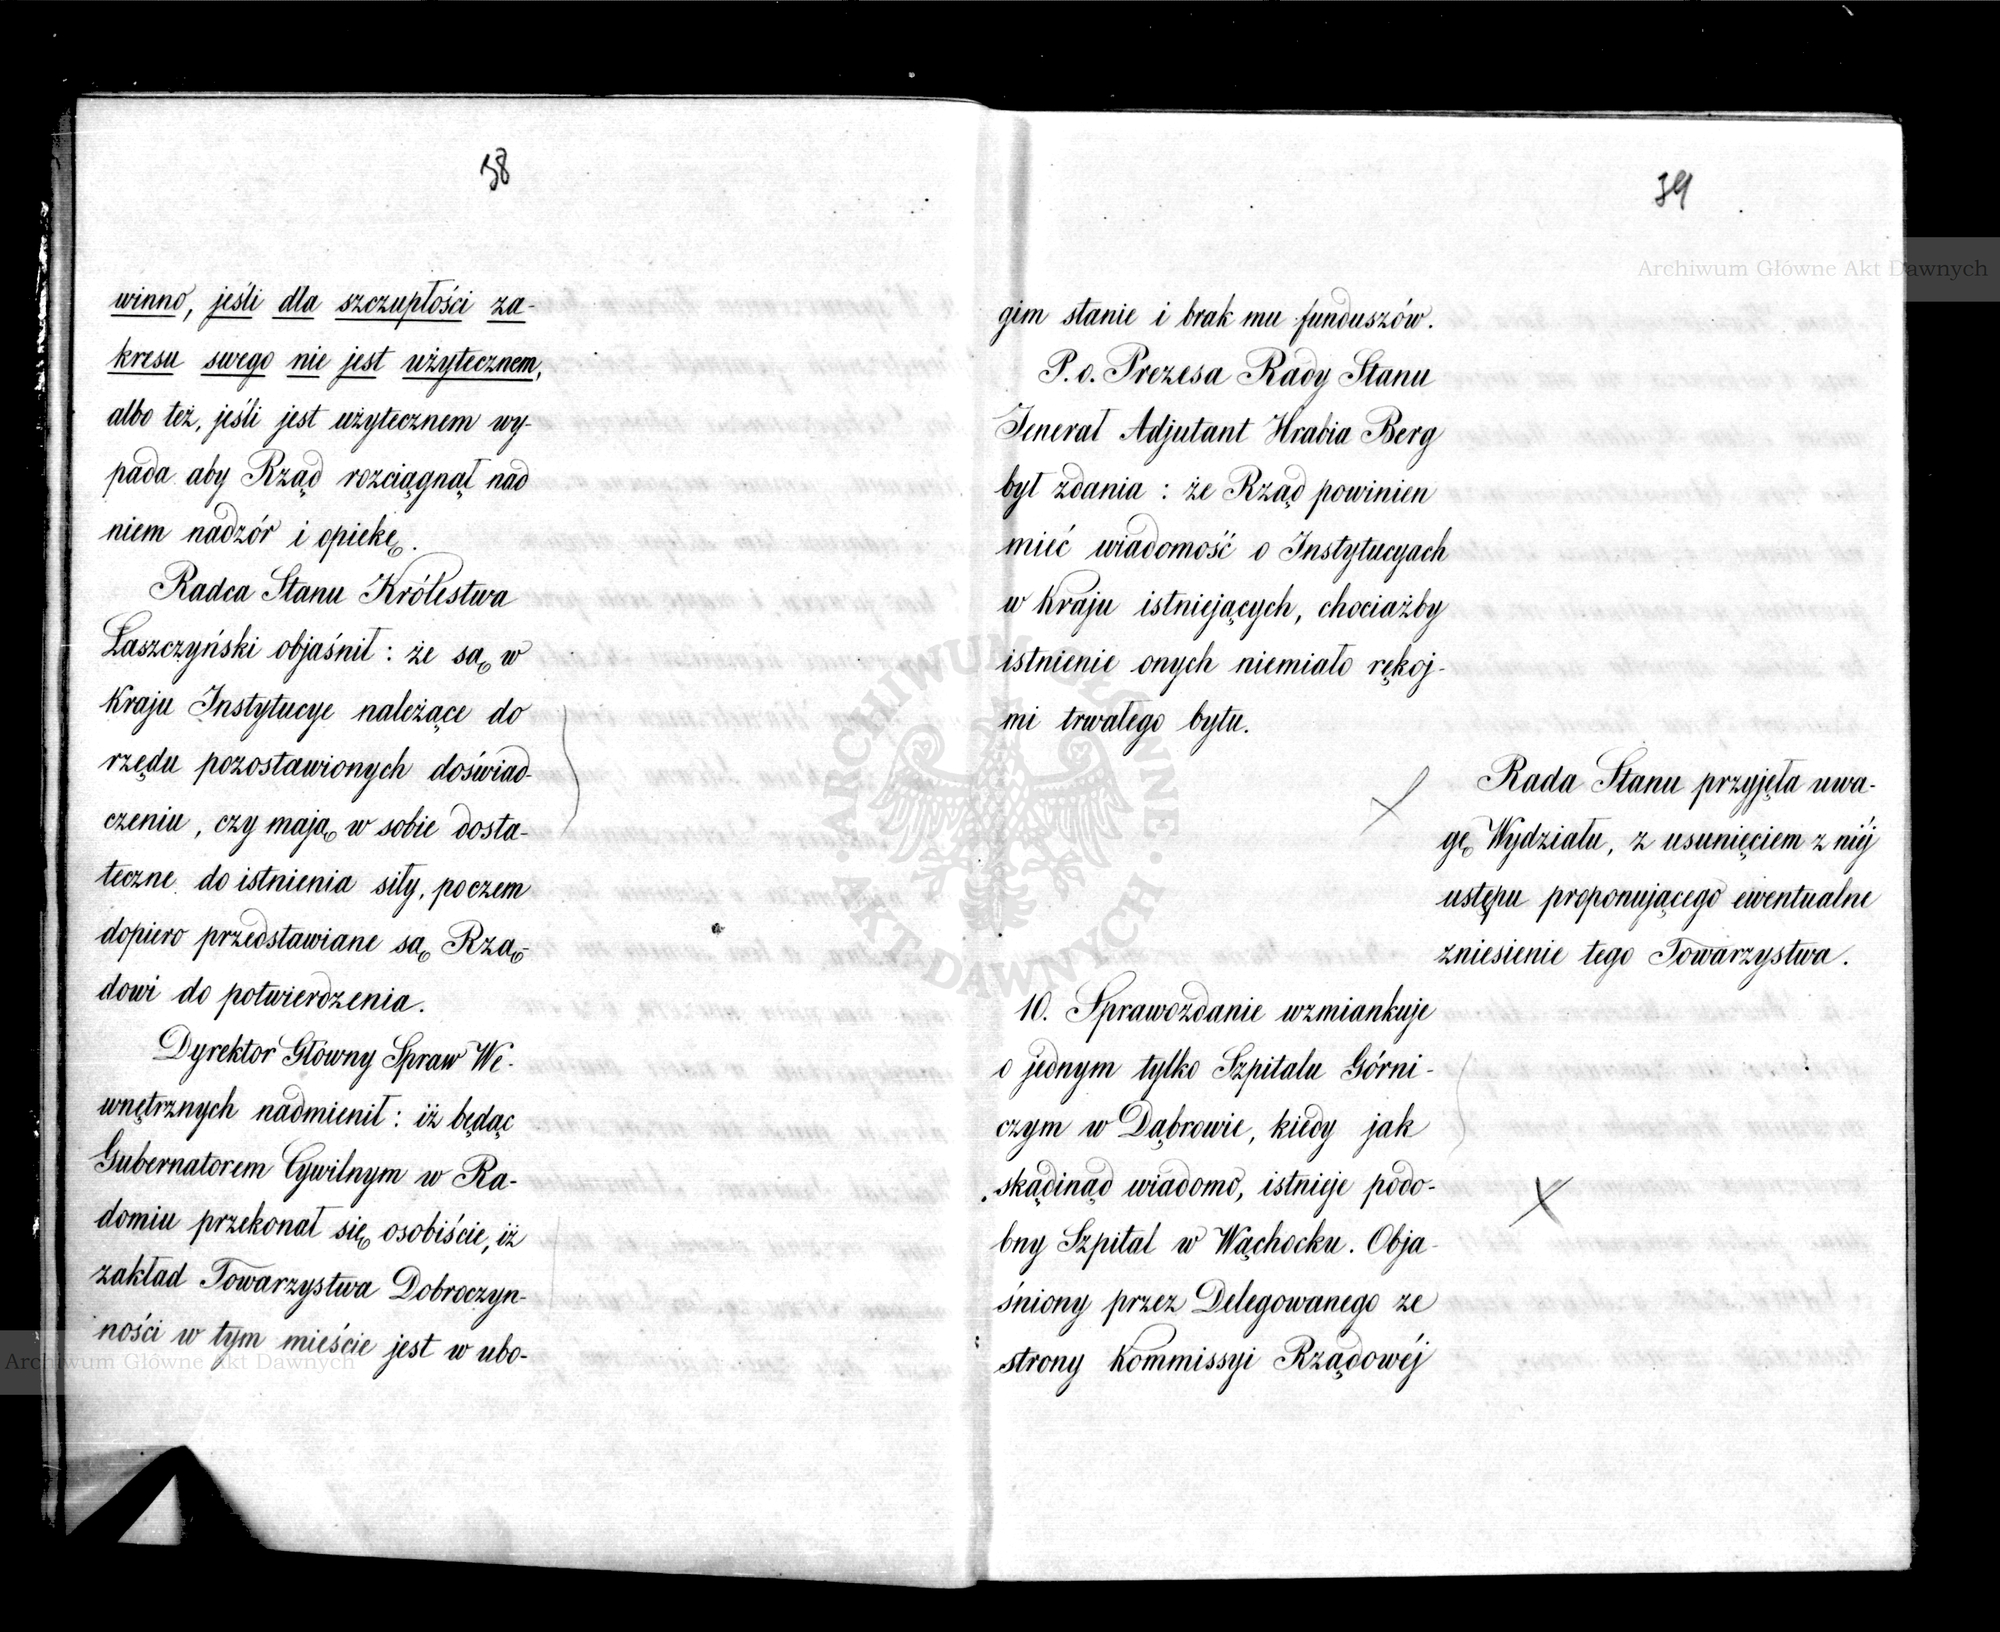 38
winno, jeśli dla szczupłości za-
kresu swego nie jest użytecznem,
albo też, jeśli jest użytecznem wy-
pada aby Rząd rozciągnął nad
niem nadzór i opiekę.
Radca Stanu Królestwa
Łaszczyński objaśnił: że są w
Kraju Instytucye należące do
rzędu pozostawionych doświad-
czeniu, czy mają w sobie dosta-
teczne do istnienia siły, poczem
dopiero przedstawiane są Rzą-
dowi do potwierdzenia.
Dyrektor Główny Spraw We-
wnętrznych nadmienił: iż będąc
Gubernatorem Cywilnym w Ra-
domiu przekonał się osobiście, iż
zakład Towarzystwa Dobroczyn-
ności w tym mieście jest w ubo-
39
gim stanie i brak mu funduszów.
P. o. Prezesa Rady Stanu
Jenerał Adjutant Hrabia Berg
był zdania: że Rząd powinien
mieć wiadomość o Instytucyach
w Kraju istniejących, chociażby
istnienie onych niemiało rękoj-
mi trwałego bytu.
Rada Stanu przyjęła uwa-
gę Wydziału, z usunięciem z niéj
ustępu proponującego ewentualne
zniesienie tego Towarzystwa.
10. Sprawozdanie wzmiankuje
o jednym tylko Szpitalu Górni-
czym w Dąbrowie, kiedy jak
skądinąd wiadomo, istnieje podo-
bny Szpital w Wąchocku. Obja-
śniony przez Delegowanego ze
strony Kommissyi Rządowéj
Archiwum Główne Akt Dawnych
Archiwum Główne Akt Dawnych
ARCHIWUM GŁÓWNE · AKT DAWNYCH ·